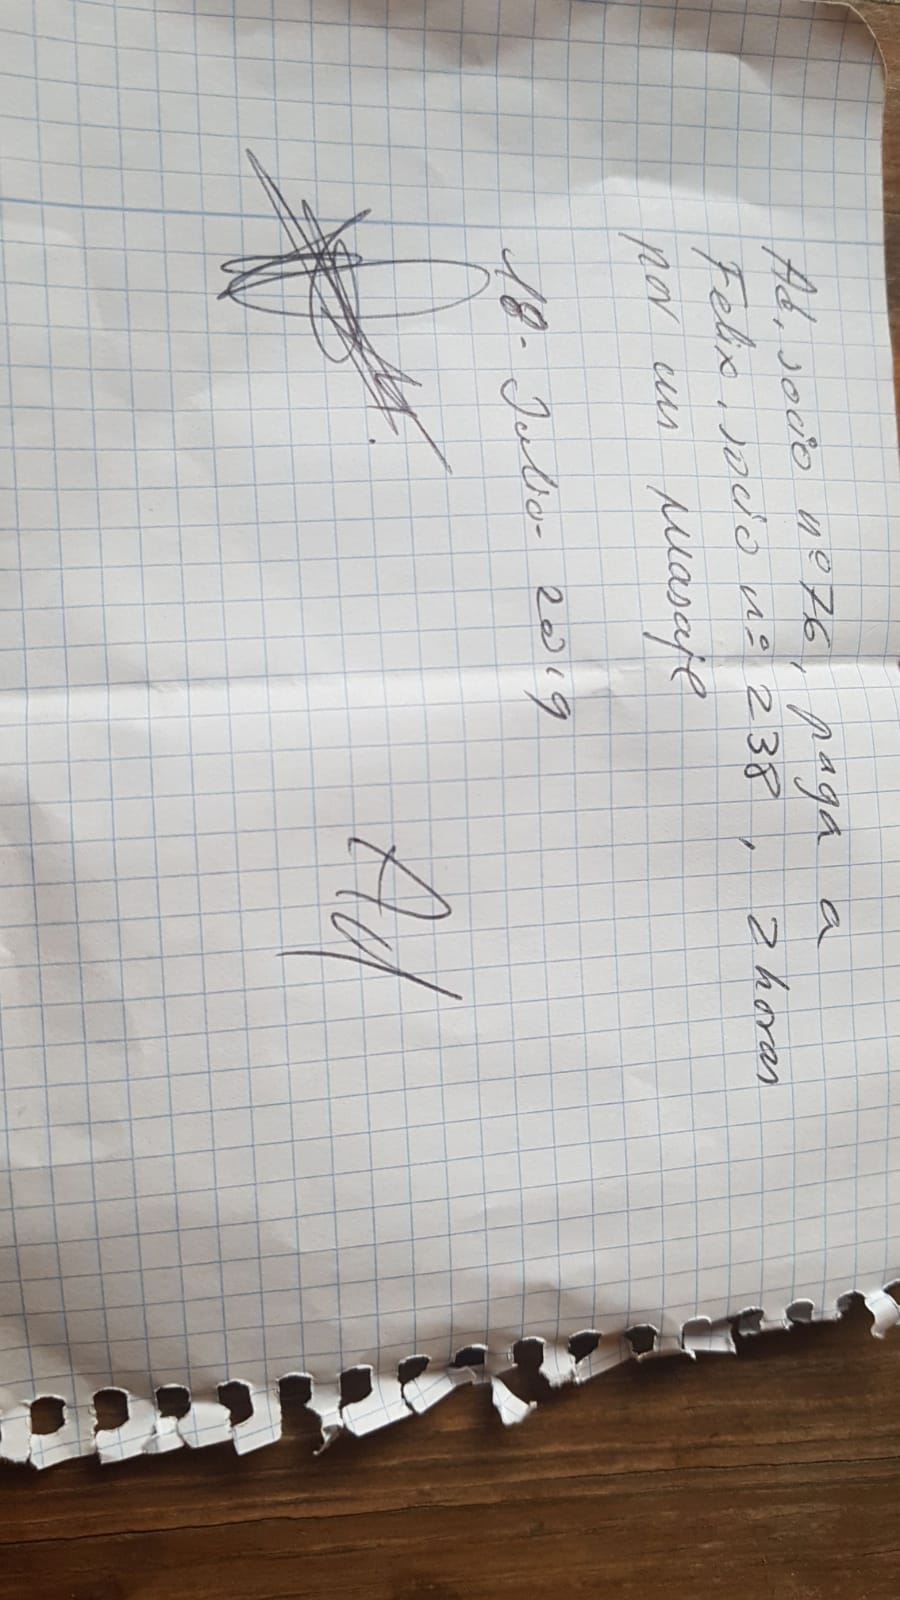 socio nº 76, paga a
Felix, socio nº 238, 2 horas
por un masaje
18- Julio- 2019